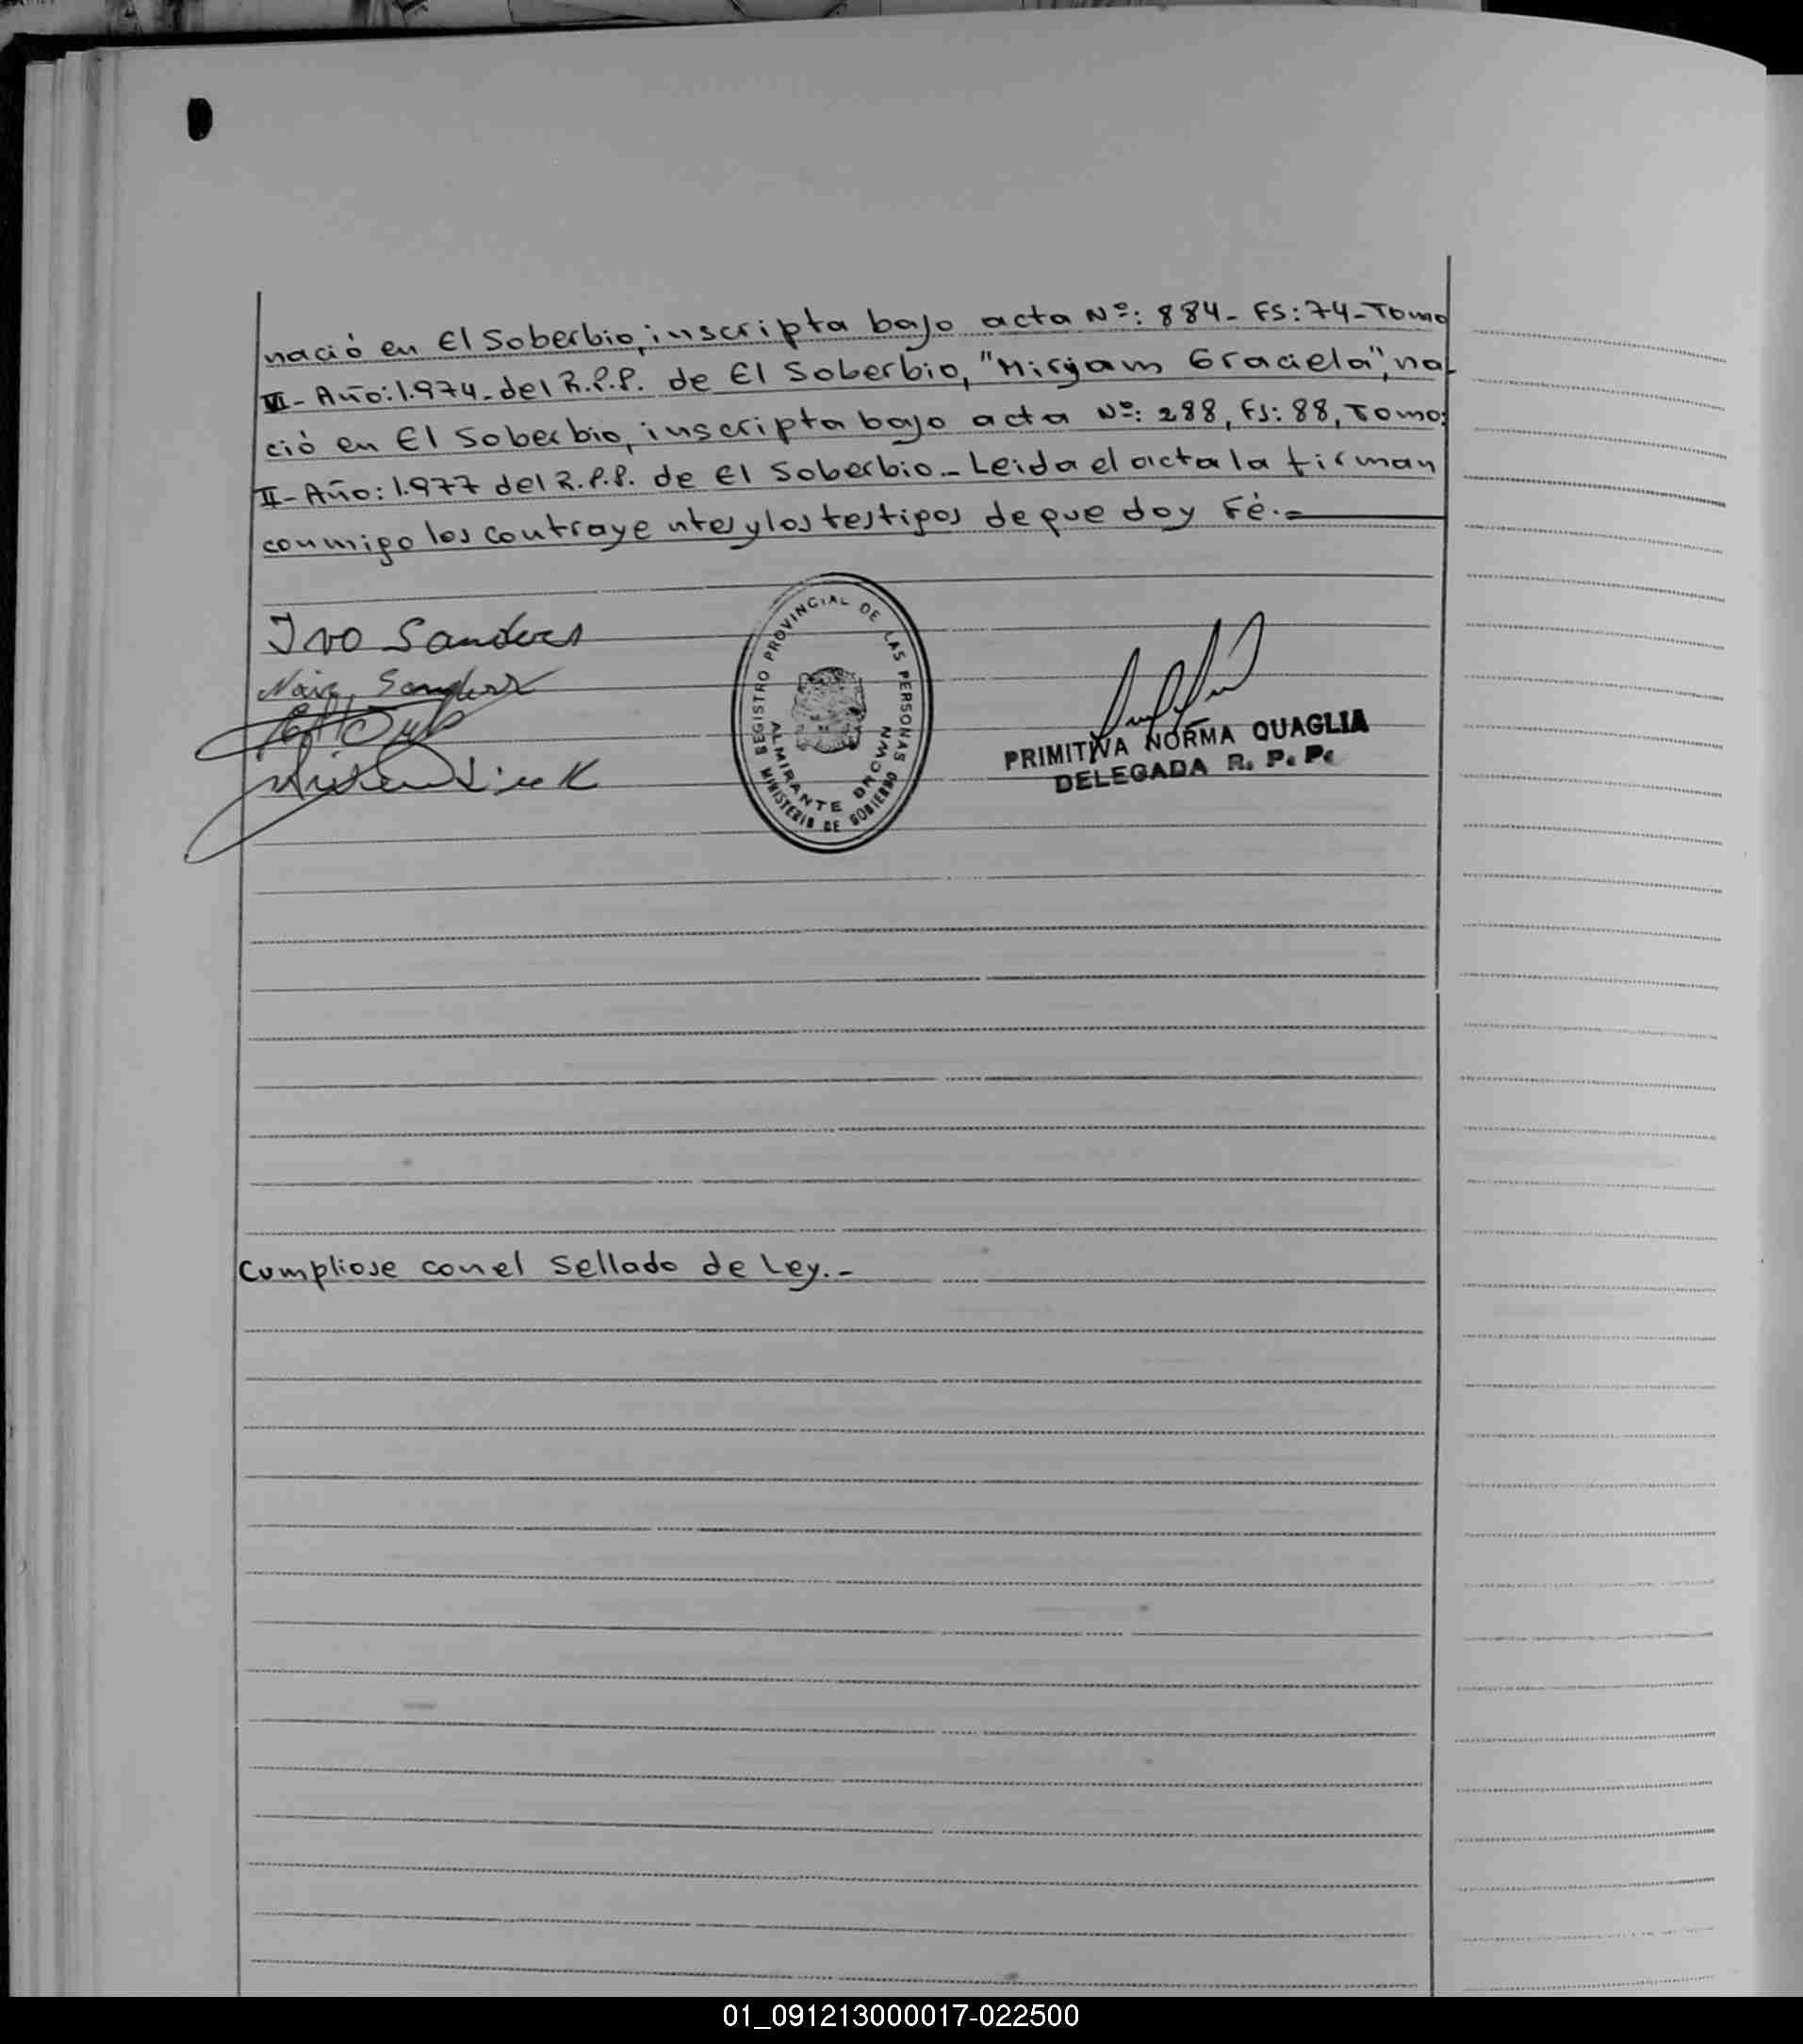 nació en El Soberbio, inscripta bajo acta Nº: 884- FS: 74- Tomo
VI- Año: 1.974- del R.P.P. de El Soberbio, "Mirjam Graciela", na-
ció en El Soberbio, inscripta bajo acta Nº: 288, Fs: 88, Tomo:
II- Año: 1.977 del R.P.P. de El Soberbio- Leida el acta la firman
conmigo los contrayentes y los testigos de que doy Fé.=
Ivo Sanders
REGISTRO PROVINCIAL DE LAS PERSONAS
MINISTERIO DE GOBIERNO
ALMIRANTE BROWN
PRIMITIVA NORMA QUAGLIA
DELEGADA R. P. P.
Cumpliose con el Sellado de Ley.-
01_091213000017-022500